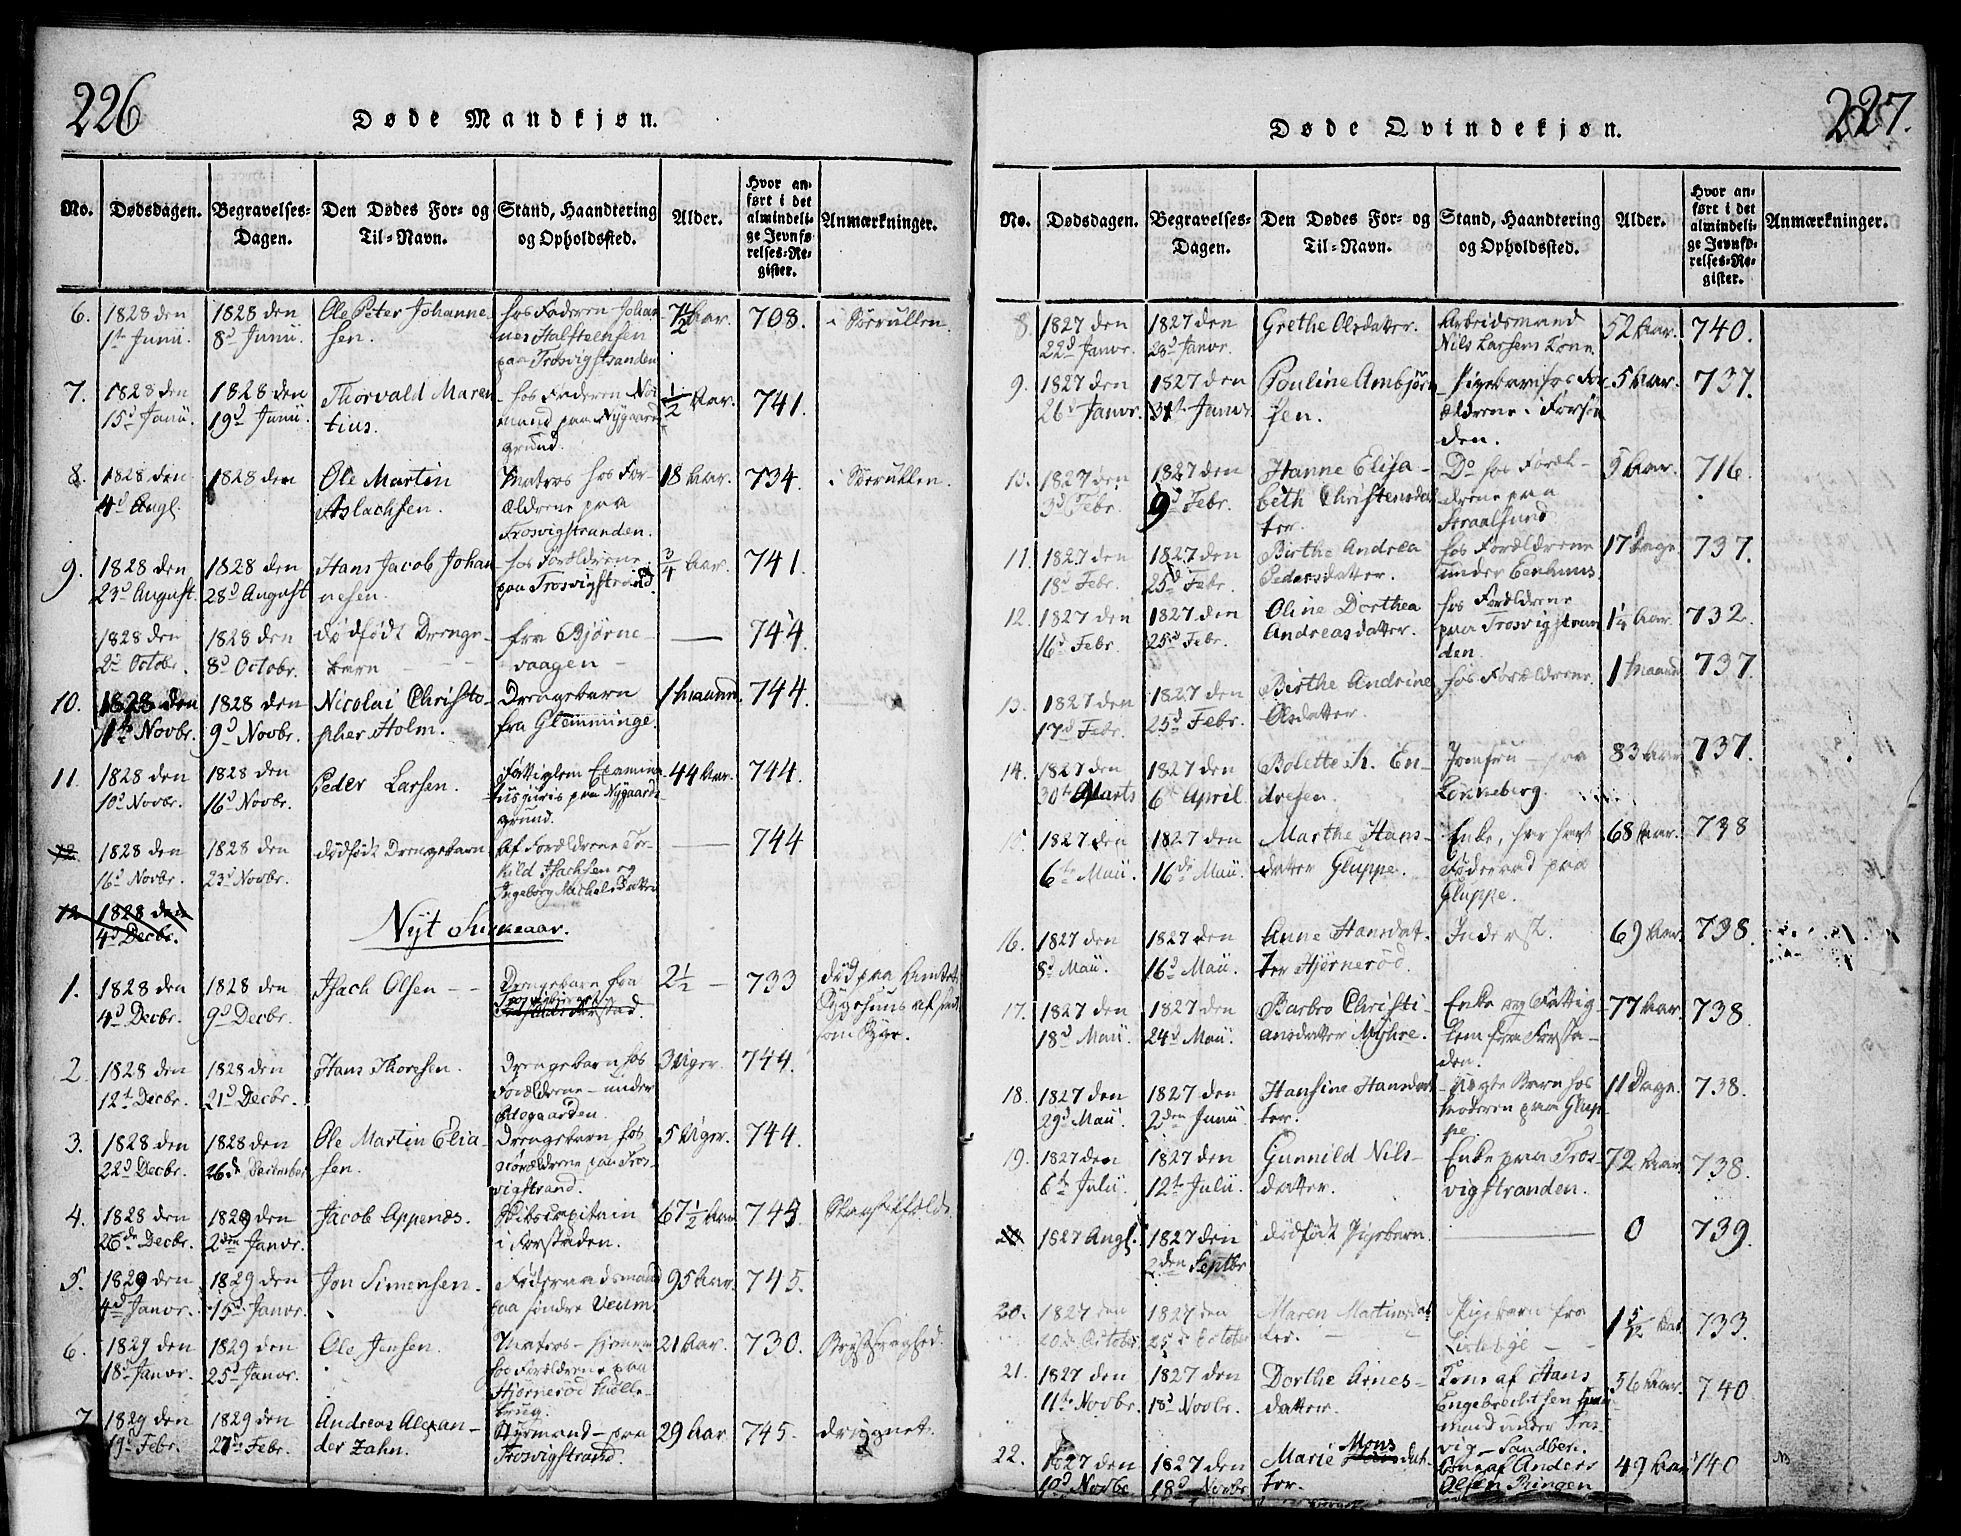 226
Døde Mandkjøn.
No. Dødsdagen. Begravelses-Dagen. Den Dødes For- og Til-Navn. Stand, Haandtering og Opholdssted. Alder. Hvor anført i det almindelige Jevnførelses-Register. Anmærkninger.
6. 1828 den 1te Junii. 1828 den 8d Junii. Ole Peter Johannesen. hos Faderen Johannes Halfteensen paa Trosvigstranden 7 1/2 Aar. 708.
7. 1828 den 15d Junii. 1828 den 19d Junii. Thorvald Marentius. hos Faderen paa Nygaardsgrund. 1/2 Aar. 741.
8. 1828 den 4d Augt. 1828 den Ole Martin Aslachsen. Matros hos Forældrene paa Trosvigstranden. 18 Aar. 734.
9. 1828 den 23d August. 1828 den 28d August Hans Jacob Johannesen. hos Forældrene paa Trosvigstrand. 3/4 Aar. 741.
1828 den 2d Octobr. 1828 den 8d Octobr. dødfødt Drengebarn fra Bjørnevaagen — 744.
10. 1828 den 1te Novbr. 1828 den 9d Novbr. Nicolai Christopher Holm. Drengebarn fra Glemminge. 1 Maaned. 744.
11. 1828 den 10d Novbr. 1828 den 16d Novbr. Peder Larsen. Fattiglem Examinatus juris paa Nygaardsgrund. 44 Aar. 744.
12 1828 den 16d Novbr. 1828 den 23d Novbr. dødfødt Drengebarn Af Forældrene Torkild Isachsen og Ingeborg Michelsdatter — 744
12 1828 den 4d Decbr.
Nyt Kirkeaar.
1. 1828 den 4d Decbr. 1828 den 9d Decbr. Isach Olsen Drengebarn fra 2 1/2 — 733 død paa Amtets Sygehuus
2. 1828 den 12te Decbr. 1828 den 21d Decbr. Hans Thoresen. Drengebarn hos Forældrene under 3 Uger. 744.
3. 1828 den 22d Decbr. 1828 den 26de December Ole Martin Eliasen. Drengebarn hos Forældrene paa Trosvigstrand. 5 Uger. 744.
4. 1828 den 26de Decbr. 1829 den 2den Janvr. Jacob Appenæs. Skibscapitain i Forstaden. 67 1/2 Aar 745.
5. 1829 den 4d Janvr. 1829 den 15d Janvr. Jon Simensen. Føderaadsmand paa søndre Veum. 95 Aar. 745.
6. 1829 den 18d Janvr. 1829 den 25d Janvr. Ole Jensen. Matros hos Forældrene paa Hjørnerød Møllebrug. 21 Aar. 730. Brystsyghed.
7 1829 den 19d Febr. 1829 den 27d Febr. Andreas Alexander Zahn. Styrmand paa Trosvigstrand. 29 Aar 745. druknet.
227.
Døde Qvindekjøn.
No. Dødsdagen. Begravelses-Dagen. Den Dødes For- og Til-Navn. Stand, Haandtering og Opholdssted. Alder. Hvor anført i det almindelige Jevnførelses-Register. Anmærkninger.
8. 1827 den 22d Janvr. 1827 den 28d Janvr. Grethe Olsdatter. Arbeidsmand Nils Larsens Kone. 52 Aar. 740.
9. 1827 den 26d Janvr. 1827 den 31te Janvr Pouline Ambjørnsen. Pigebarn hos Forældrene i Forstaden. 5 Aar. 737.
10. 1827 den 3d Febr. 1827 den 9d Febr. Hanne Elisabeth Christensdatter. Do hos Forældrene paa Straalsund. 5 Aar. 716.
11. 1827 den 18d Febr. 1827 den 25d Febr. Birthe Andrea Pedersdatter. hos Forældrene under Evenhuus. 17 Dage 737.
12. 1827 den 16d Febr. 1827 den 25d Febr. Oline Dorthea Andreasdatter. hos Forældrene paa Trosvigstranden 1 1/4 Aar. 732.
13. 1827 den 17d Febr. 1827 den 25d Febr. Birthe Andrine Olsdatter. hos Forældrene. 1 Maaned 737.
14. 1827 den 30te Marts 1827 den 6te April Bolette K. Endresen. Jomfru paa Lønneberg. 83 Aar 737.
15. 1827 den 6te Maii. 1827 den 16de Maii. Marthe Hansdatter Gluppe. Enke, har havt Føderaad paa Gluppe. 68 Aar. 738
16. 1827 den 8d Maii. 1827 den 16d Maii. Anne Hansdatter Hjørnerød. Inderst. 69 Aar. 738.
17. 1827 den 18d Maii. 1827 den 24d Maii. Barbro Christiansdatter Myhre. Enke og Fattiglem fra Forstaden. 77 Aar. 738.
18. 1827 den 29d Maii 1827 den 2den Junii Hansine Hansdatter. Uægte Barn hos Moderen paa Gluppe. 11 Dage. 738.
19. 1827 den 6te Julii. 1827 den 12te Julii. Gunnild Nilsdatter. Enke paa Trosvigstranden. 72 Aar. 738.
20 1827 Augt. 1827 den 2den Septbr dødfødt Pigebarn. — 0 739.
20. 1827 den 20de October 1827 den 25d October Maren Martinsdatter. Pigebarn fra Lisleby 1 5/12 Aar. 733.
21. 1827 den 11te Novbr. 1827 den 18d Novbr. Dorthe Arnesdatter. Kone af Hans Engebrechtsen under Trosvig — Sandberg. 56 Aar. 740
22. 1827 den 10d Novbr 1827 den 18d Novbr Marie Monsdatter. Kone af Anders Olsen Ringen 49 Aar 740 NB